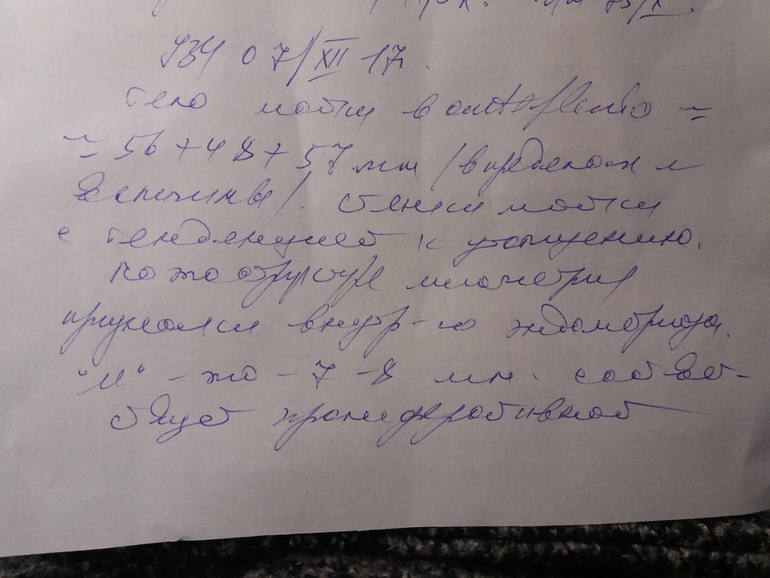 УЗИ 07/XII 17г.
Тело матки в anteflexio ≈
≈ 56+48+57 мм (в пределах N
величины). Стенки матки
с тенденцией к утолщению.
По эхоструктуре миометрия
признаки внутр-го эндометриоза.
"М" - эхо - 7-8 мм. соответ-
ствует пролиферативной